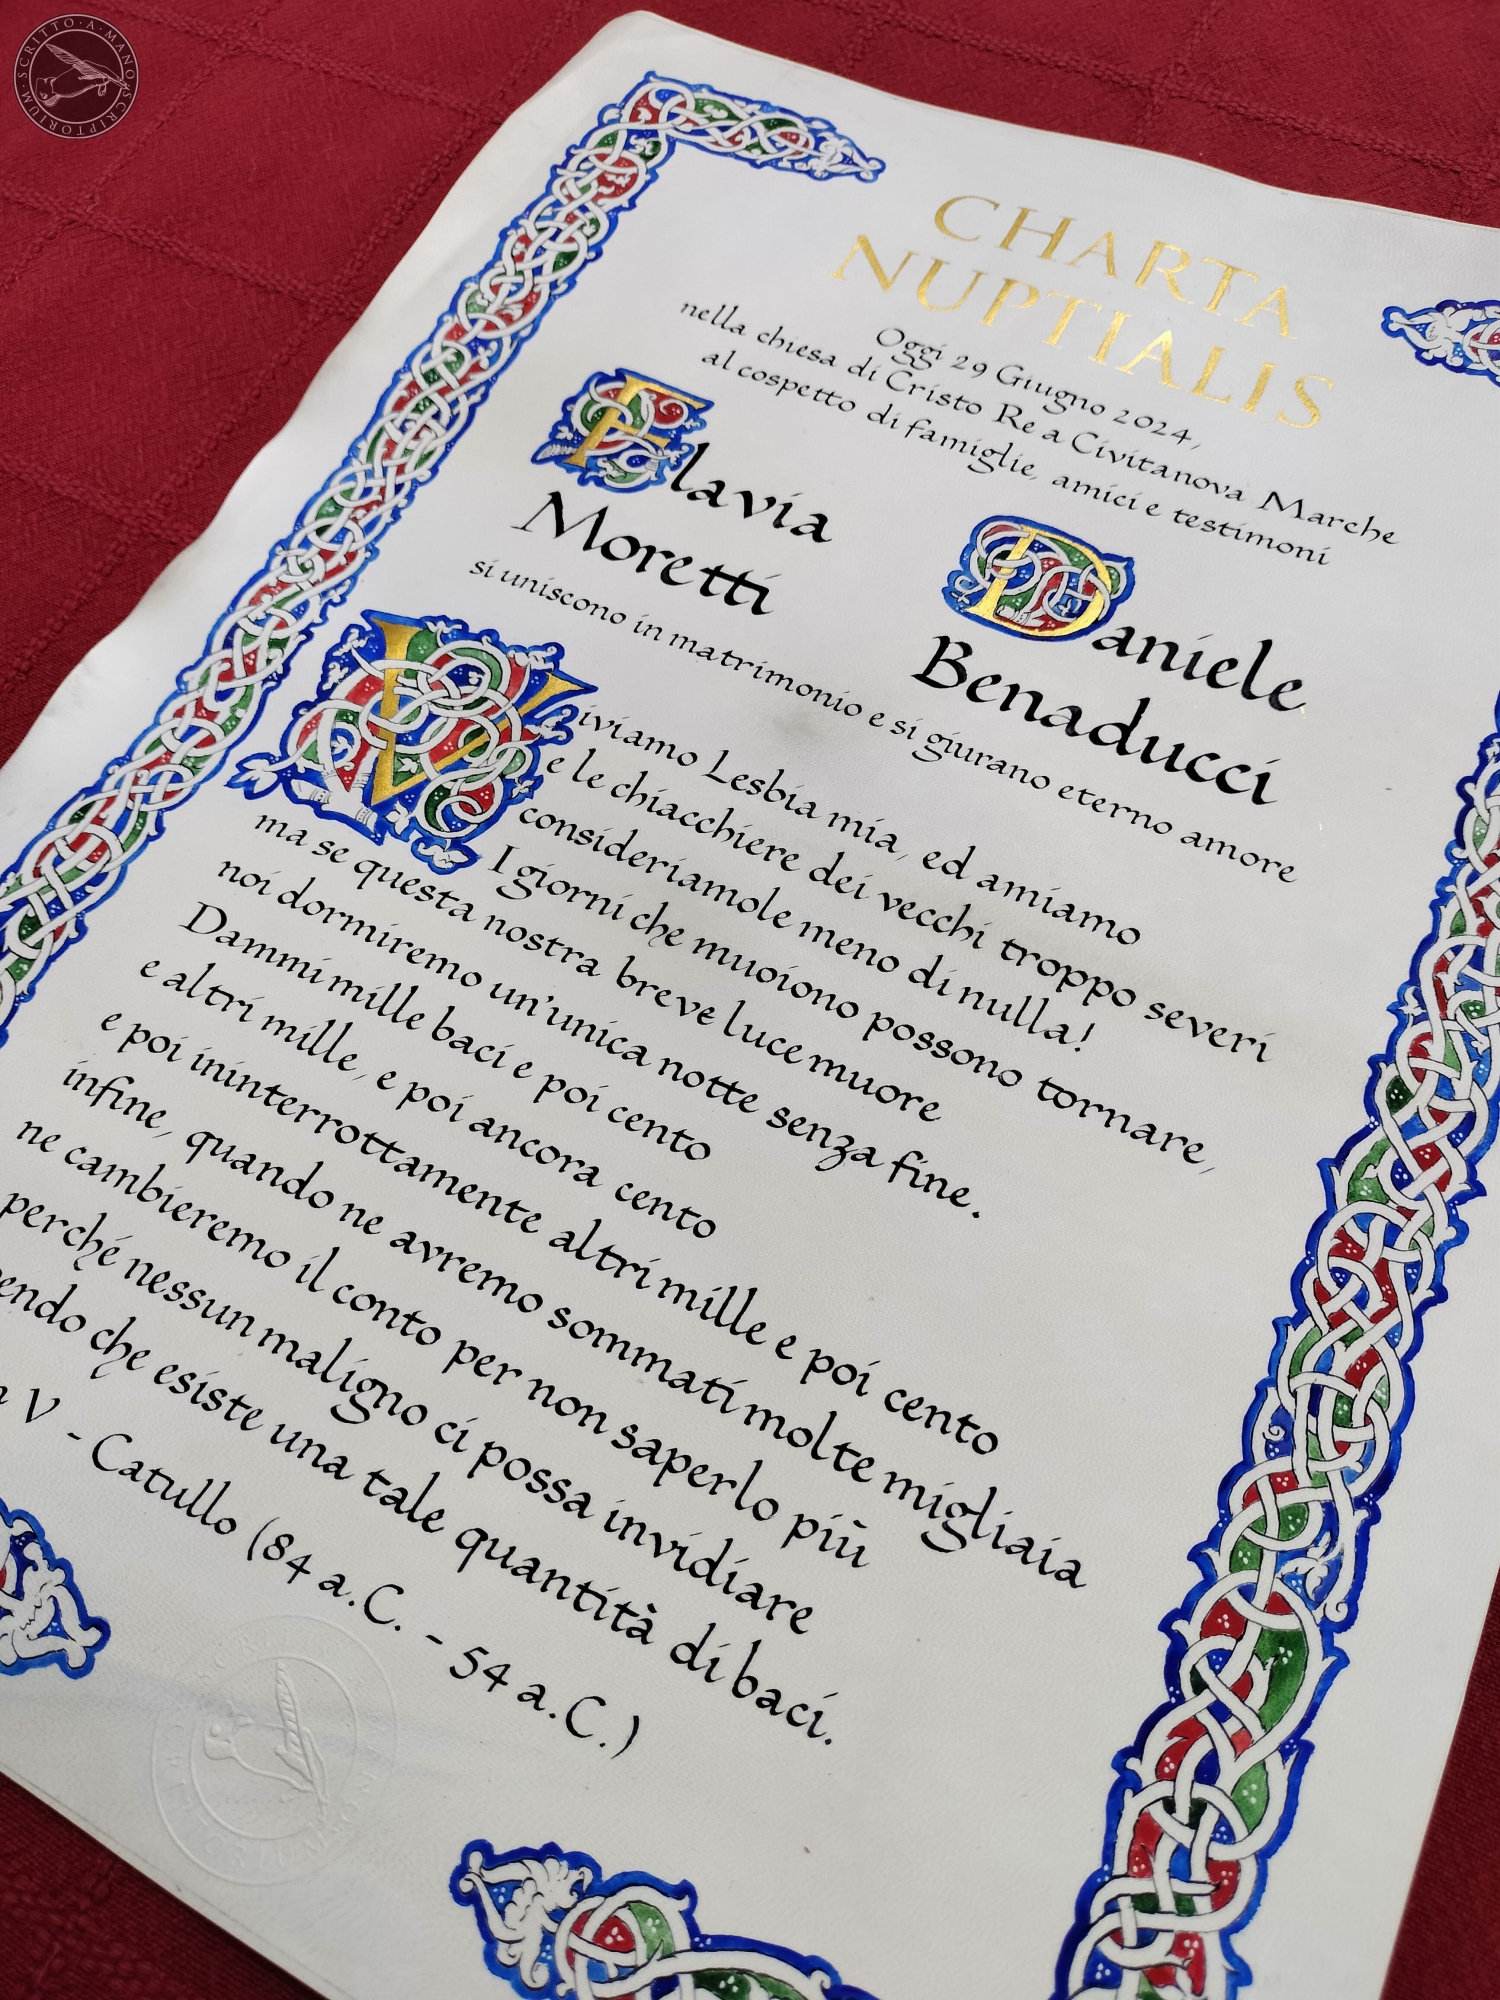 SCRITTO · A · MANO · SCRIPTORIUM ·
CHARTA
NUPTIALIS
Oggi 29 Giugno 2024,
nella chiesa di Cristo Re a Civitanova Marche
al cospetto di famiglie, amici e testimoni
Flavia
Moretti
Daniele
Benaducci
si uniscono in matrimonio e si giurano eterno amore
Viviamo Lesbia mia, ed amiamo
e le chiacchiere dei vecchi troppo severi
consideriamole meno di nulla!
I giorni che muoiono possono tornare,
ma se questa nostra breve luce muore
noi dormiremo un'unica notte senza fine.
Dammi mille baci e poi cento
e altri mille, e poi ancora cento
e poi ininterrottamente altri mille e poi cento
infine, quando ne avremo sommati molte migliaia
ne cambieremo il conto per non saperlo più
perché nessun maligno ci possa invidiare
che esiste una tale quantità di baci.
V - Catullo (84 a.C. - 54 a.C.)